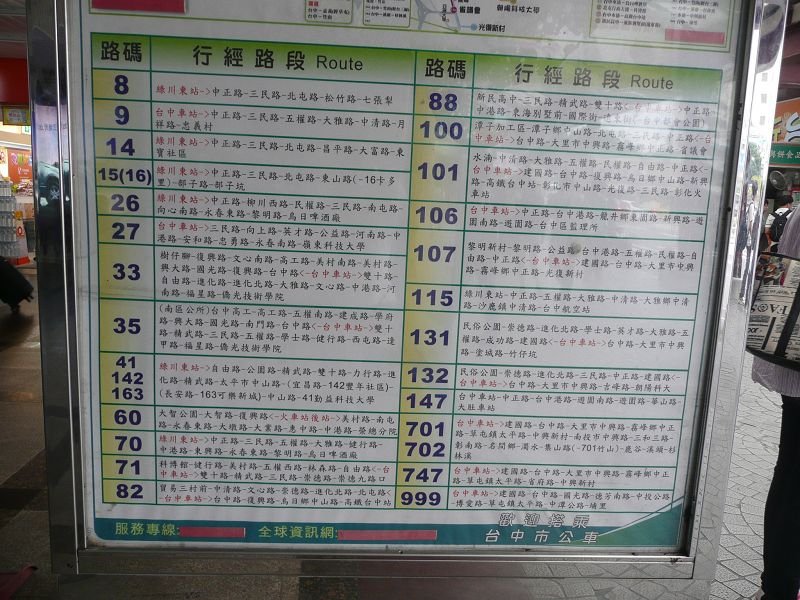 光復新村
朝陽科技大學
路碼 行經路段 Route
8 綠川東站->中正路-三民路-北屯路-松竹路-七張犁
9 台中車站->中正路-三民路-五權路-大雅路-中清路-月
祥路-忠義村
14 綠川東站->中正路-三民路-北屯路-昌平路-大富路-東
寶社區
15(16) 綠川東站->中正路-三民路-北屯路-東山路(-16卡多
里)-部子路-部子坑
26 綠川東站->中正路-柳川西路-民權路-三民路-南屯路-
向心南路-永春東路-黎明路-烏日啤酒廠
27 台中車站->三民路-向上路-英才路-公益路-河南路-中
港路-安和路-忠勇路-永春南路-嶺東科技大學
33 樹仔腳-復興路-文心南路-高工路-美村南路-美村路-
興大路-國光路-復興路-台中路<-台中車站->雙十路-
自由路-進化路-進化北路-大雅路-文心路-中港路-河
南路-福星路-僑光技術學院
35 (南區公所)台中高工-高工路-五權南路-建成路-學府
路-興大路-國光路-南門路-台中路<-台中車站->雙十
路-精武路-三民路-五權路-學士路-健行路-西屯路-逢
甲路-福星路-僑光技術學院
41
142
163 綠川東站->自由路-公園路-精武路-雙十路-力行路-進
化路-精武路-太平市中山路-(宜昌路-142豐年社區)-
(長安路-163可樂新城)-中山路-41勤益科技大學
60 大智公園-大智路-復興路<-火車站後站->美村路-南屯
路-永春東路-大墩路-大業路-惠中路-中港路-榮總分院
70 綠川東站->中正路-三民路-五權路-大雅路-健行路-
中港路-東興路-永春東路-黎明路-烏日啤酒廠
71 科博館-健行路-美村路-五權西路-林森路-自由路<-台
中車站->雙十路-精武路-三民路-崇德路-崇德九路口
82 貿易三村前-中清路-文心路-崇德路-進化北路-北屯路
<-台中車站->台中路-復興路-烏日鄉中山路-高鐵台中站
路碼 行經路段 Route
88 新民高中-三民路-精武路-雙十路<-台中車站->中正路-
中港路-東海別墅前-國際街-遠東街(-台中都會公園)
100 潭子加工區-潭子鄉中山路-北屯路-三民路-中正路<-台
中車站->台中路-大里市中興路-霧峰鄉中正路-省議會
101 水湳-中清路-大雅路-五權路-民權路-自由路-中正路<-
台中車站->建國路-台中路-復興路-烏日鄉中山路-新興
路-高鐵台中站-彰化市中山路-光復路-三民路-彰化火
車站
106 台中車站->中正路-台中港路-龍井鄉東園路-新興路-遊
園南路-遊園路-台中區監理所
107 黎明新村-黎明路-公益路-台中港路-五權路-民權路-自
由路-中正路<-台中車站->建國路-台中路-大里市中興
路-霧峰鄉中正路-光復新村
115 綠川東站-中正路-五權路-大雅路-中清路-大雅鄉中清
路-沙鹿鎮中清路-台中航空站
131 民俗公園-崇德路-進化北路-學士路-英才路-大雅路-五
權路-成功路-建國路<-台中車站->台中路-大里市中興
路-塗城路-竹仔坑
132 民俗公園-崇德路-進化北路-三民路-中正路-建國路<-
台中車站->台中路-大里市中興路-吉峰路-朝陽科大
147 台中車站-中正路-台中港路-遊園南路-遊園路-華山路-
大肚車站
701
702 台中車站->建國路-台中路-大里市中興路-霧峰鄉中正
路-草屯鎮太平路-中興新村-南投市中興路-三和三路-
彰南路-名間鄉-濁水-集山路(-701竹山)-鹿谷-溪頭-杉
林溪
747 台中車站->建國路-台中路-大里市中興路-霧峰鄉中正
路-草屯鎮太平路-省府路-中興新村
999 台中車站->建國路-台中路-國光路-德芳南路-中投公路
-博愛路-草屯鎮太平路-中潭公路-埔里
服務專線: 全球資訊網:
歡迎搭乘
台中市公車